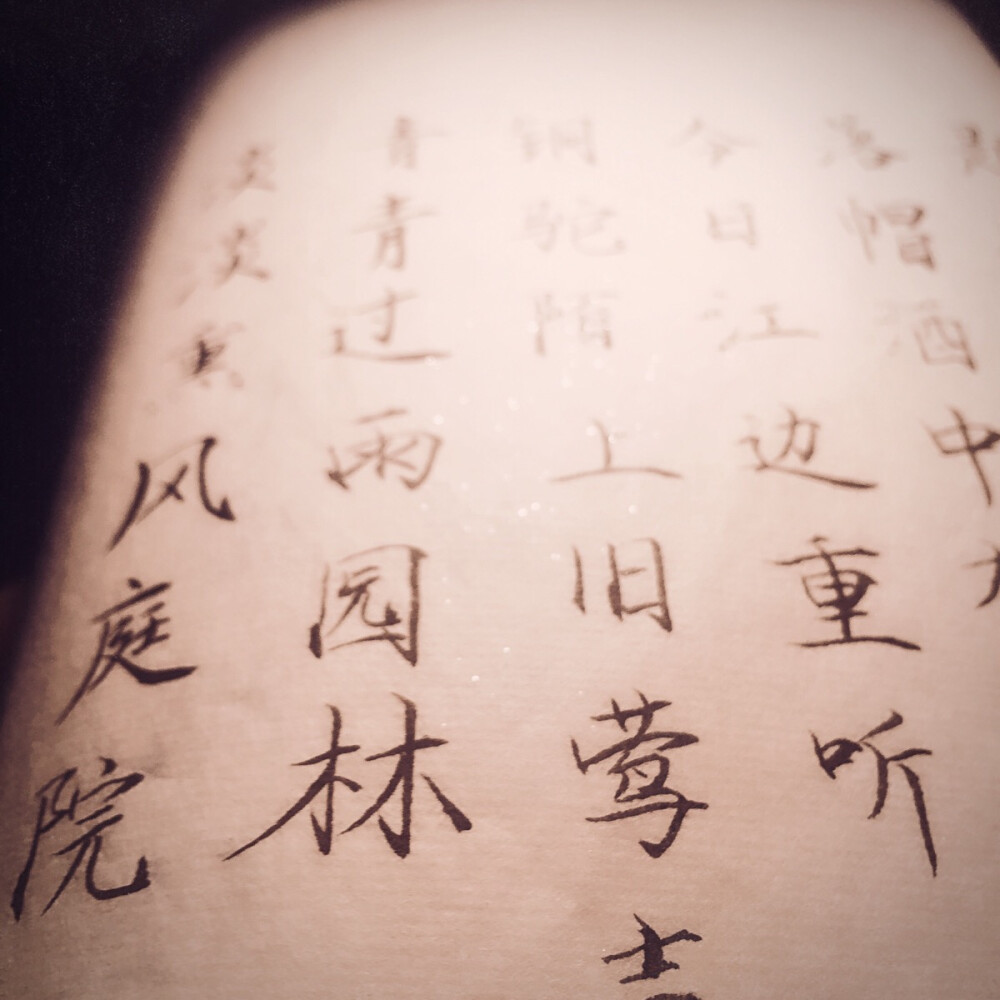 淡淡熏风庭院
青青过雨园林
铜驼陌上旧莺
今日江边重听
落帽酒中